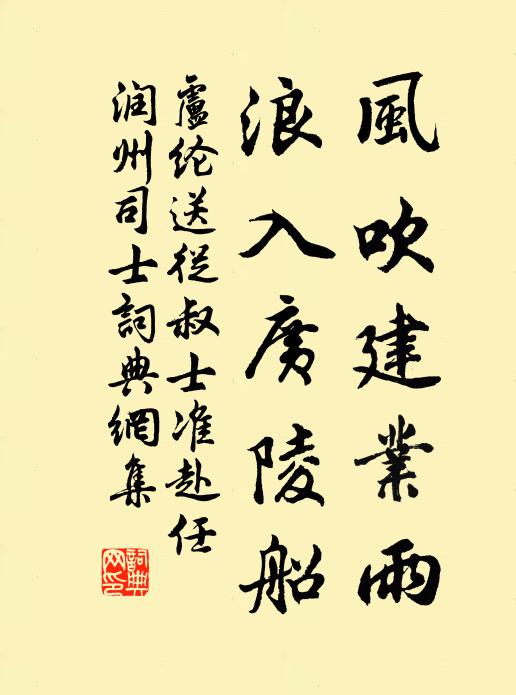 風吹建業雨
浪入廣陵船
盧纶送從叔士准赴任
润州司士詞典網集
詞典网印